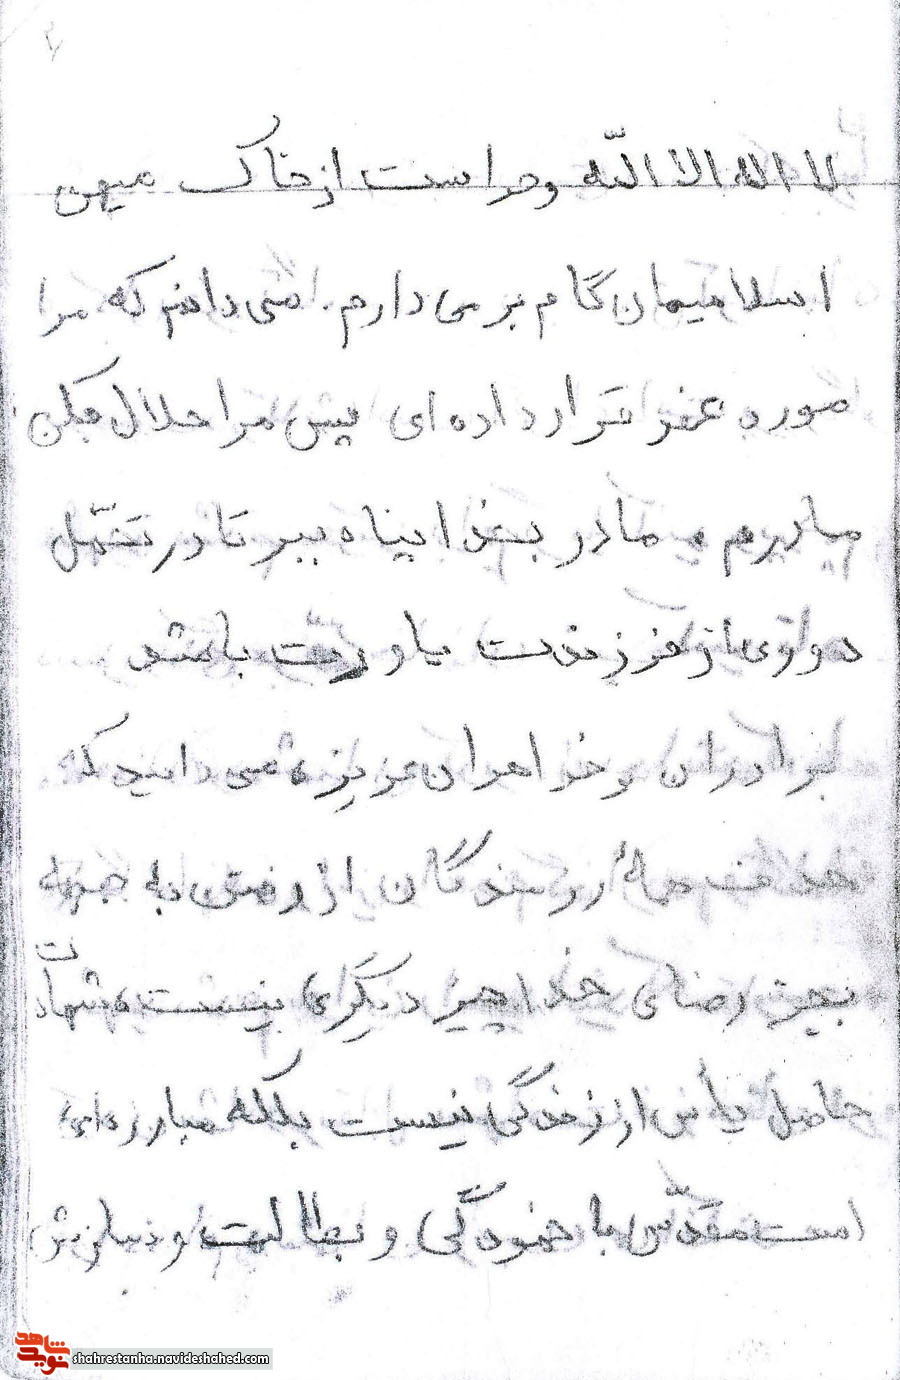 ۲
لا اله الا اللّه وحراست از خاک میهن
اسلامیمان گام بر می دارم. می دانم که مرا
مورد عفو قرار داده ای پس مرا حلال کن
پدرم و مادر بخدا پناه ببر تا در تحمّل
دوری از فرزندت یاورت باشد
برادران و خواهران عزیز، می دانید که
هدف همهٔ رزمندگان از رفتن به جبهه
بجز رضای خدا چیز دیگری نیست، شهادت
حاصل یأس از زندگی نیست بلکه مبارزه ای
است مقدّس با خمودگی و بطالت و
شاهد
نوید
shahrestanha.navideshahed.com